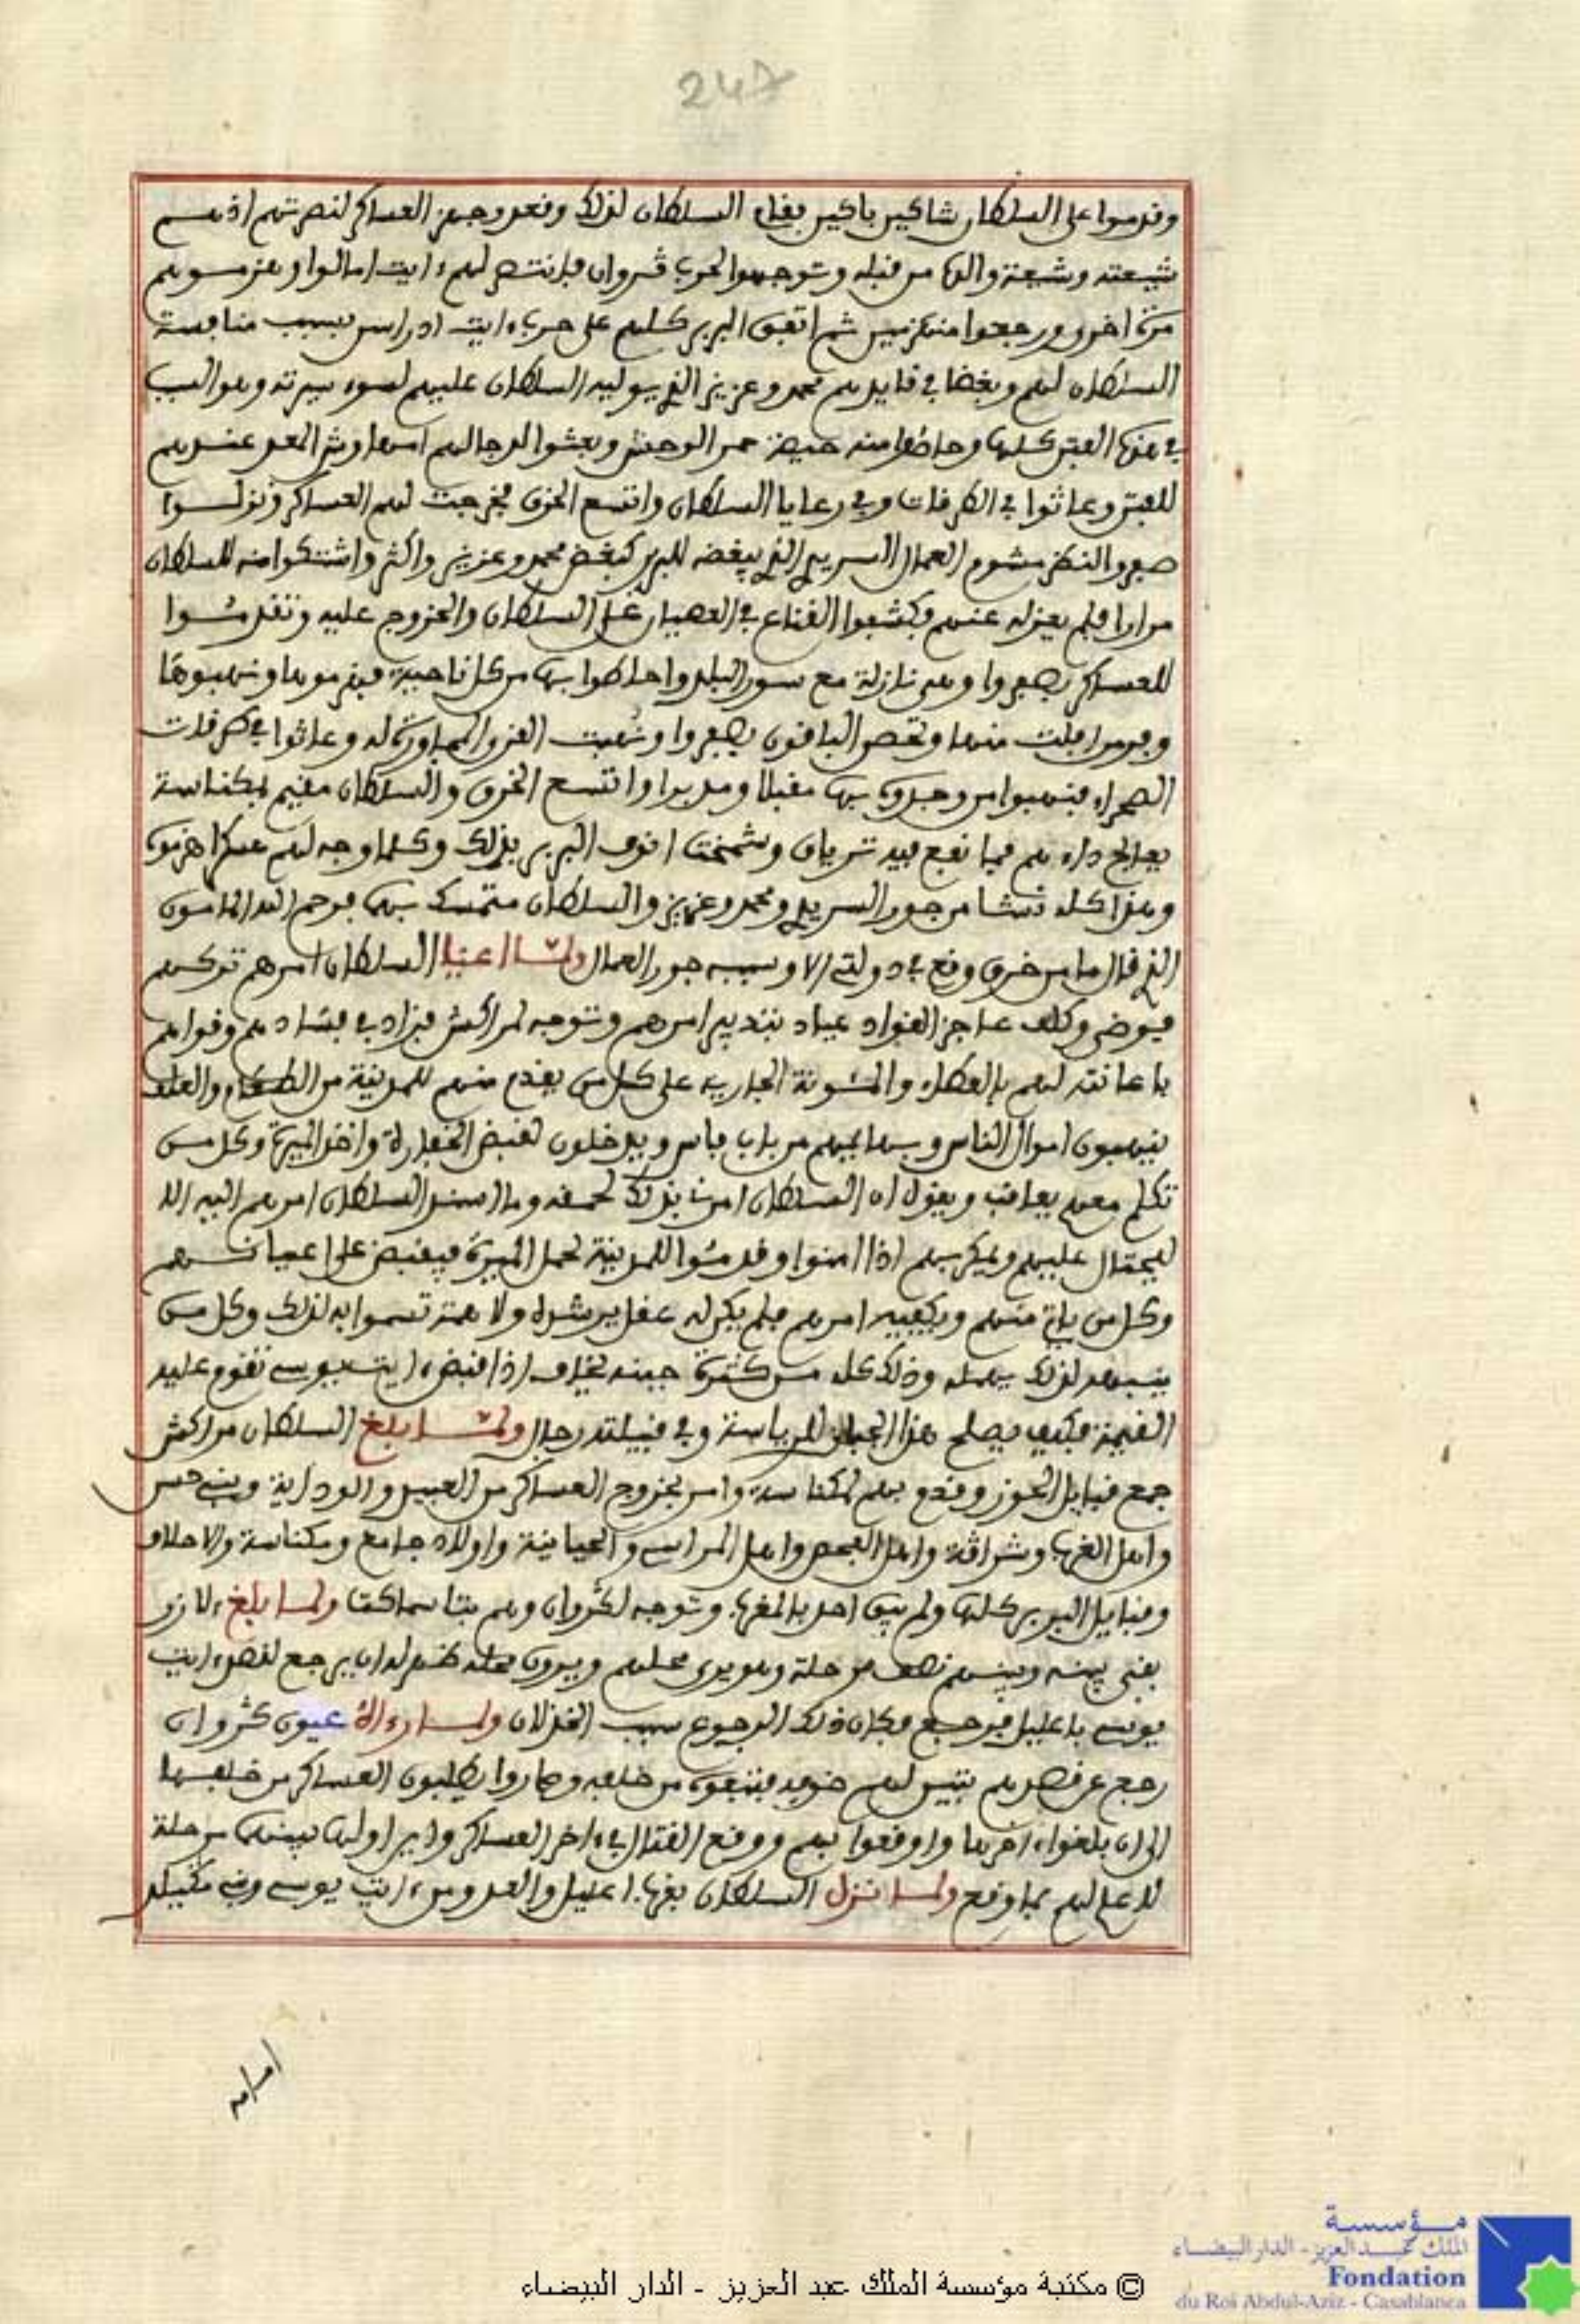 247
وقدموا على السلطان شاكين باكين فقام السلطان لذلك وقعد وجهز العساكر لنصرتهم اذ هم
شيعته وشيعة والده من قبله وتوجهوا لحرب ڭروان فانتصر لهم ءايت امالوا وهزموهم
مرة اخرى ورجعوا منهزمين ثم اتفق البربر كلهم على حرب ءايت ادراسن بسبب منافسة
السلطان لهم وبغضا في قايدهم محمد وعزيز الذي يوليه السلطان عليهم لسوء سيرته وهو السبب
في هذه الفتن كلها وحاصوا منه حيصة حمر الوحش وبعثوا لدجالهم امهاوش المعد عندهم
للفتن وعاثوا في الطرقات وفي رعايا السلطان واتسع الخرق فخرجت لهم العساكر ونزلوا
صفرو النظر مشوم العمال السريفي الذي يبغضه البربر كبغض محمد وعزيز واكثر واشتكوا منه للسلطان
مرارا فلم يعزله عنهم فكشفوا القناع في العصيان على السلطان والخروج عليه وتقدموا
للعساكر بصفروا وهي نازلة مع سور البلد واحاطوا بها من كل ناحية فهزموها ونهبوها
وفر من افلت منها وتحصن الباقون بصفروا ونهبت القرى المجاورة له وعاثوا في طرقات
الصحراء فنهبوا من وجدوه بها مقبلا ومدبرا واتسع الخرق والسلطان مقيم بمكناسة
يعالج داءهم فما نفع فيه ترياق وشمخت انوف البربر بذلك وكلما وجه لهم عسكرا هزموه
وهذا كله نشا من جور السريفي ومحمد وعزيز والسلطان متمسك بهما فرحم الله المامون
الذي قال ما من خرق وقع في دولتي الا وسببه جور العمال ولما اعيا السلطان امرهم تركهم
فيوضى وكلف عاجز القواد عياد بتدبير امرهم وتوجه لمراكش فزاد في فسادهم وقواهم
باعانته لهم بالعطاء والمئونة الجارية على كل من يقدم منهم للمدينة من الطعام والعلف
ينهبون اموال الناس وبهايمهم من باب فاس ويدخلون لقبض الخفارة واخذ الميرة وكل من
تكلم معهم يعاقب ويقول ان السلطان امرنا بذلك لحمقه وما السلطان امرهم اليه الا
ليحتال عليهم ويمكر بهم اذا امنوا وقدموا للمدينة لحمل الميرة فيقبض على اعيانهم
وكل من ياتي منهم ويكفيه امرهم فلم يكن له عقل يرشده ولا همة تسموا به لذلك وكل من
ينبهه لذلك يهمله وذلك كله من كثرة جبنه يخاف اذا قبض ءايت يوسي تقوم عليه
القيمة فكيف يصلح هذا الجبان للرياسة وفي قبيلته رجال ولما بلغ السلطان مراكش
جمع قبايل الحوز وقدم بهم لمكناسة وامر بخروج العساكر من العبيد والودايا وبني حسن
واهل الغرب وشراڭة واهل الفحص واهل المراسي والحياينة واولاد جامع ومكناسة والاحلاف
وقبايل البربر كلها ولم يبق احد بالمغرب وتوجه لڭروان وهم بتاسماكت ولما بلغ ءلازرو
بقى بينه وبينهم نصف مرحلة وهو يرى محلهم ويرون محله ظهر له ان يرجع لقصد ءايت
يوسي باعليل فرجع فكان ذلك الرجوع سبب الخذلان ولما راءاه عيون ڭروان
رجع عن قصدهم تبين لهم خوفه فتبعوه من خلفه وصاروا يطلبون العساكر من خلفها
الى ان بلغوا ءاخرها واوقعوا بهم ووقع القتال في ءاخر العساكر واين اولها بينهما مرحلة
لا علم لهم بما وقع ولما نزل السلطان بقرب اعليل والعدو من ءايت يوسي وبني مڭيلد
امامه
© مكتبة مؤسسة الملك عبد العزيز - الدار البيضاء
مؤسسة
الملك عبد العزيز - الدار البيضاء
Fondation
du Roi Abdul-Aziz - Casablanca